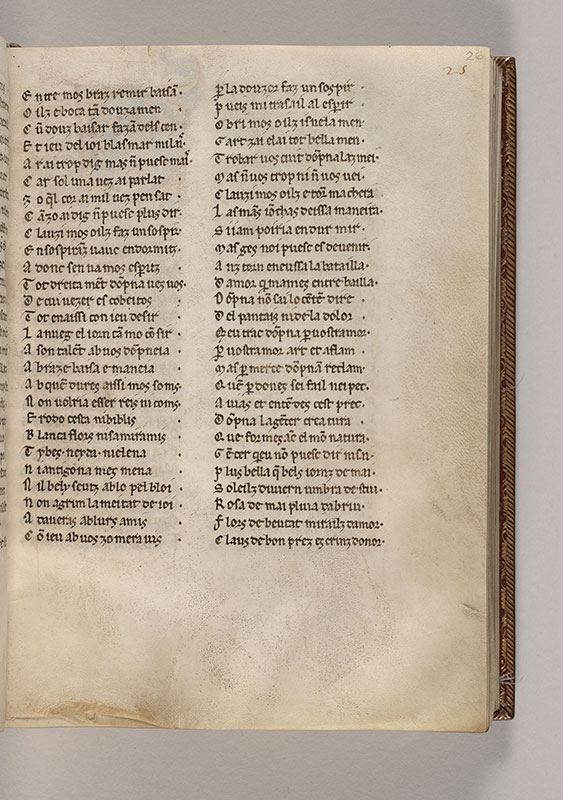 26
25
E ntre mos braz remir baisā·
O ilz e boca tā douzamen
C ū douz baisar fazā deis cen·
E t ieu del ioi blasmar mi lai·
A rai trop dig mas n̄ puesc mai·
C ar sol una vez ai parlat
z o q̄l cor ai mil vez pensat ·
C āzo ai dig n̄ puesc plus dir·
C lauzi mos oilz faz un sospir·
E n sospirā uauc endormitz·
A donc sen ua mos espirz ·
T ot dreita mēt dōpna ues uos·
D e cui uezer es cobeitos ·
T ot enaissi con ieu desir ·
L a nueg el iorn cā mo cōsir ·
A son talēt ab uos dōpneia ·
A braze baisa e maneia ·
A b quē dures aissi mos soms·
N on uolria esser reis ni coms·
E rodo cesta ni biblis ·
B lanca flors ni samiramis ·
T ybes neyda ni elena ·
N i antigona mes mena ·
N il bely seutz ab lo pel bloi ·
N on agrim la meitat de ioi ·
A taueras ab lurs amis ·
C ō ieu ab uos zo mera uis ·
P̄ la douzor faz un sospir
p ueis mi trasail al espir
O bri mos oilz isuela men·
G art zai e lai tot bella men·
T robar uos cuit dōpna laz mei·
M as n̄ uos trop ni n̄ uos uei·
C lauzi mos oilz e tōr ma chera
L as mās iōchas deissa maneira·
S i iam poiria endurmir·
M as ges noi puesc esdeuenir·
A nz torn en eussa la batailla·
D amor q̄ mames entre bailla·
D ōpna nō sai lo cētē dire ·
D el pantais ni de la dolor ·
Q eu trac dōpna p̄ uostramor·
P̄ uostramor art et aflam ·
M as p̄ merce dōpnā reclam·
Q uē p̄dones sei fail nei pec·
A uias et entēdes cest prec·
D ōpna la gēzer creatura ·
Q ue formes āc el mō natura·
G ēcer qeu nō puesc dir ni sn·
P lus bella q̄ bels iornz de mai·
S oleilz diuern umbra de stiu·
R osa de mai pluia dabriu·
F lors de beutat mirailz damor·
C laus de bon prez escrinz donor·